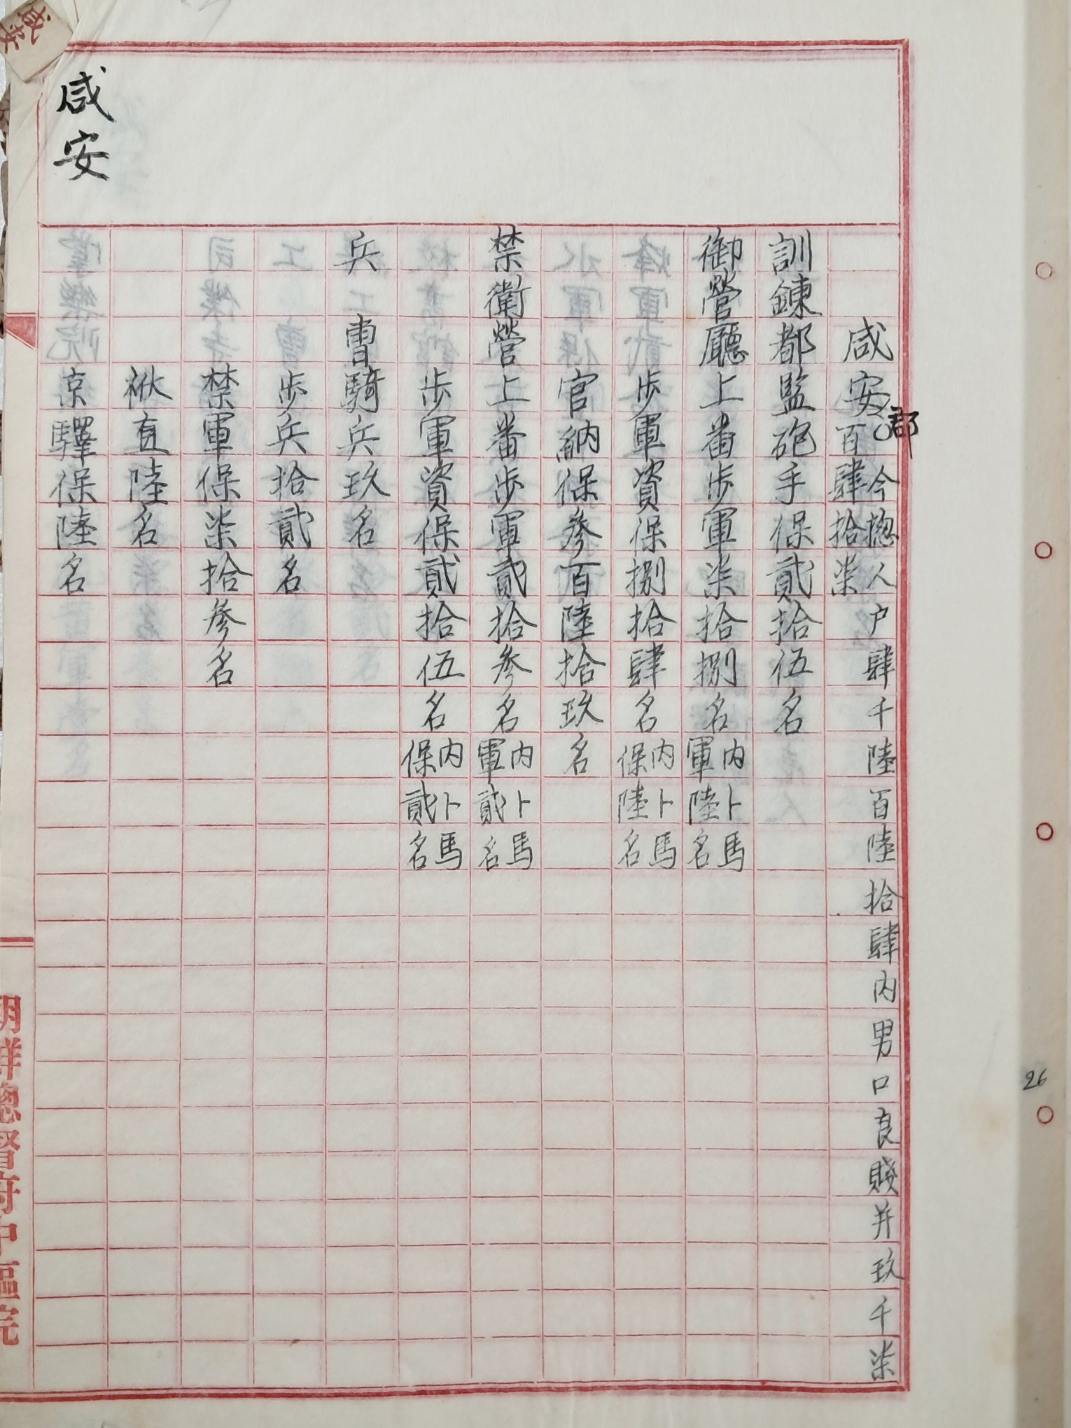 咸安
咸安郡
今摠人户肆千陸百陸拾肆内男口良賤并玖千柒
百肆拾柒
訓鍊都監砲手保貳拾伍名
御營廳上番步軍柒拾捌名内卜馬軍陸名
步軍資保捌拾肆名内卜馬保陸名
官納保參百陸拾玖名
禁衛營上番步軍貳拾參名内卜馬軍貳名
步軍資保貳拾伍名内卜馬保貳名
兵曹騎兵玖名
步兵拾貳名
禁軍保柒拾參名
直陸名
京驛保陸名
朝鮮總督府中樞院
26
咸安